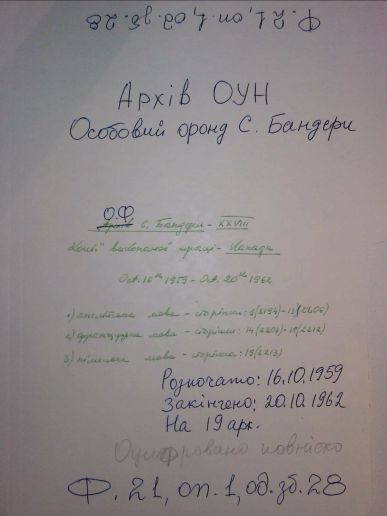 Ф. 21, оп. 1, од. зб. 28
Архів ОУН
Особовий фонд С. Бандери
О.Ф
Архів С. Бандери - XXVIII
виконаної праці - Канада
Oct. 16th 1959 - Oct. 20th 1962
1) англійська мова - сторінки: 1(2194)-13(2206)
2) французька мова - сторінки: 14(2207)-18(2212)
3) німецька мова - сторінка: 19(2213)
Розпочато: 16.10.1959
Закінчено: 20.10.1962
На 19 арк.
Оцифровано повністю
Ф. 21, оп. 1, од. зб. 28